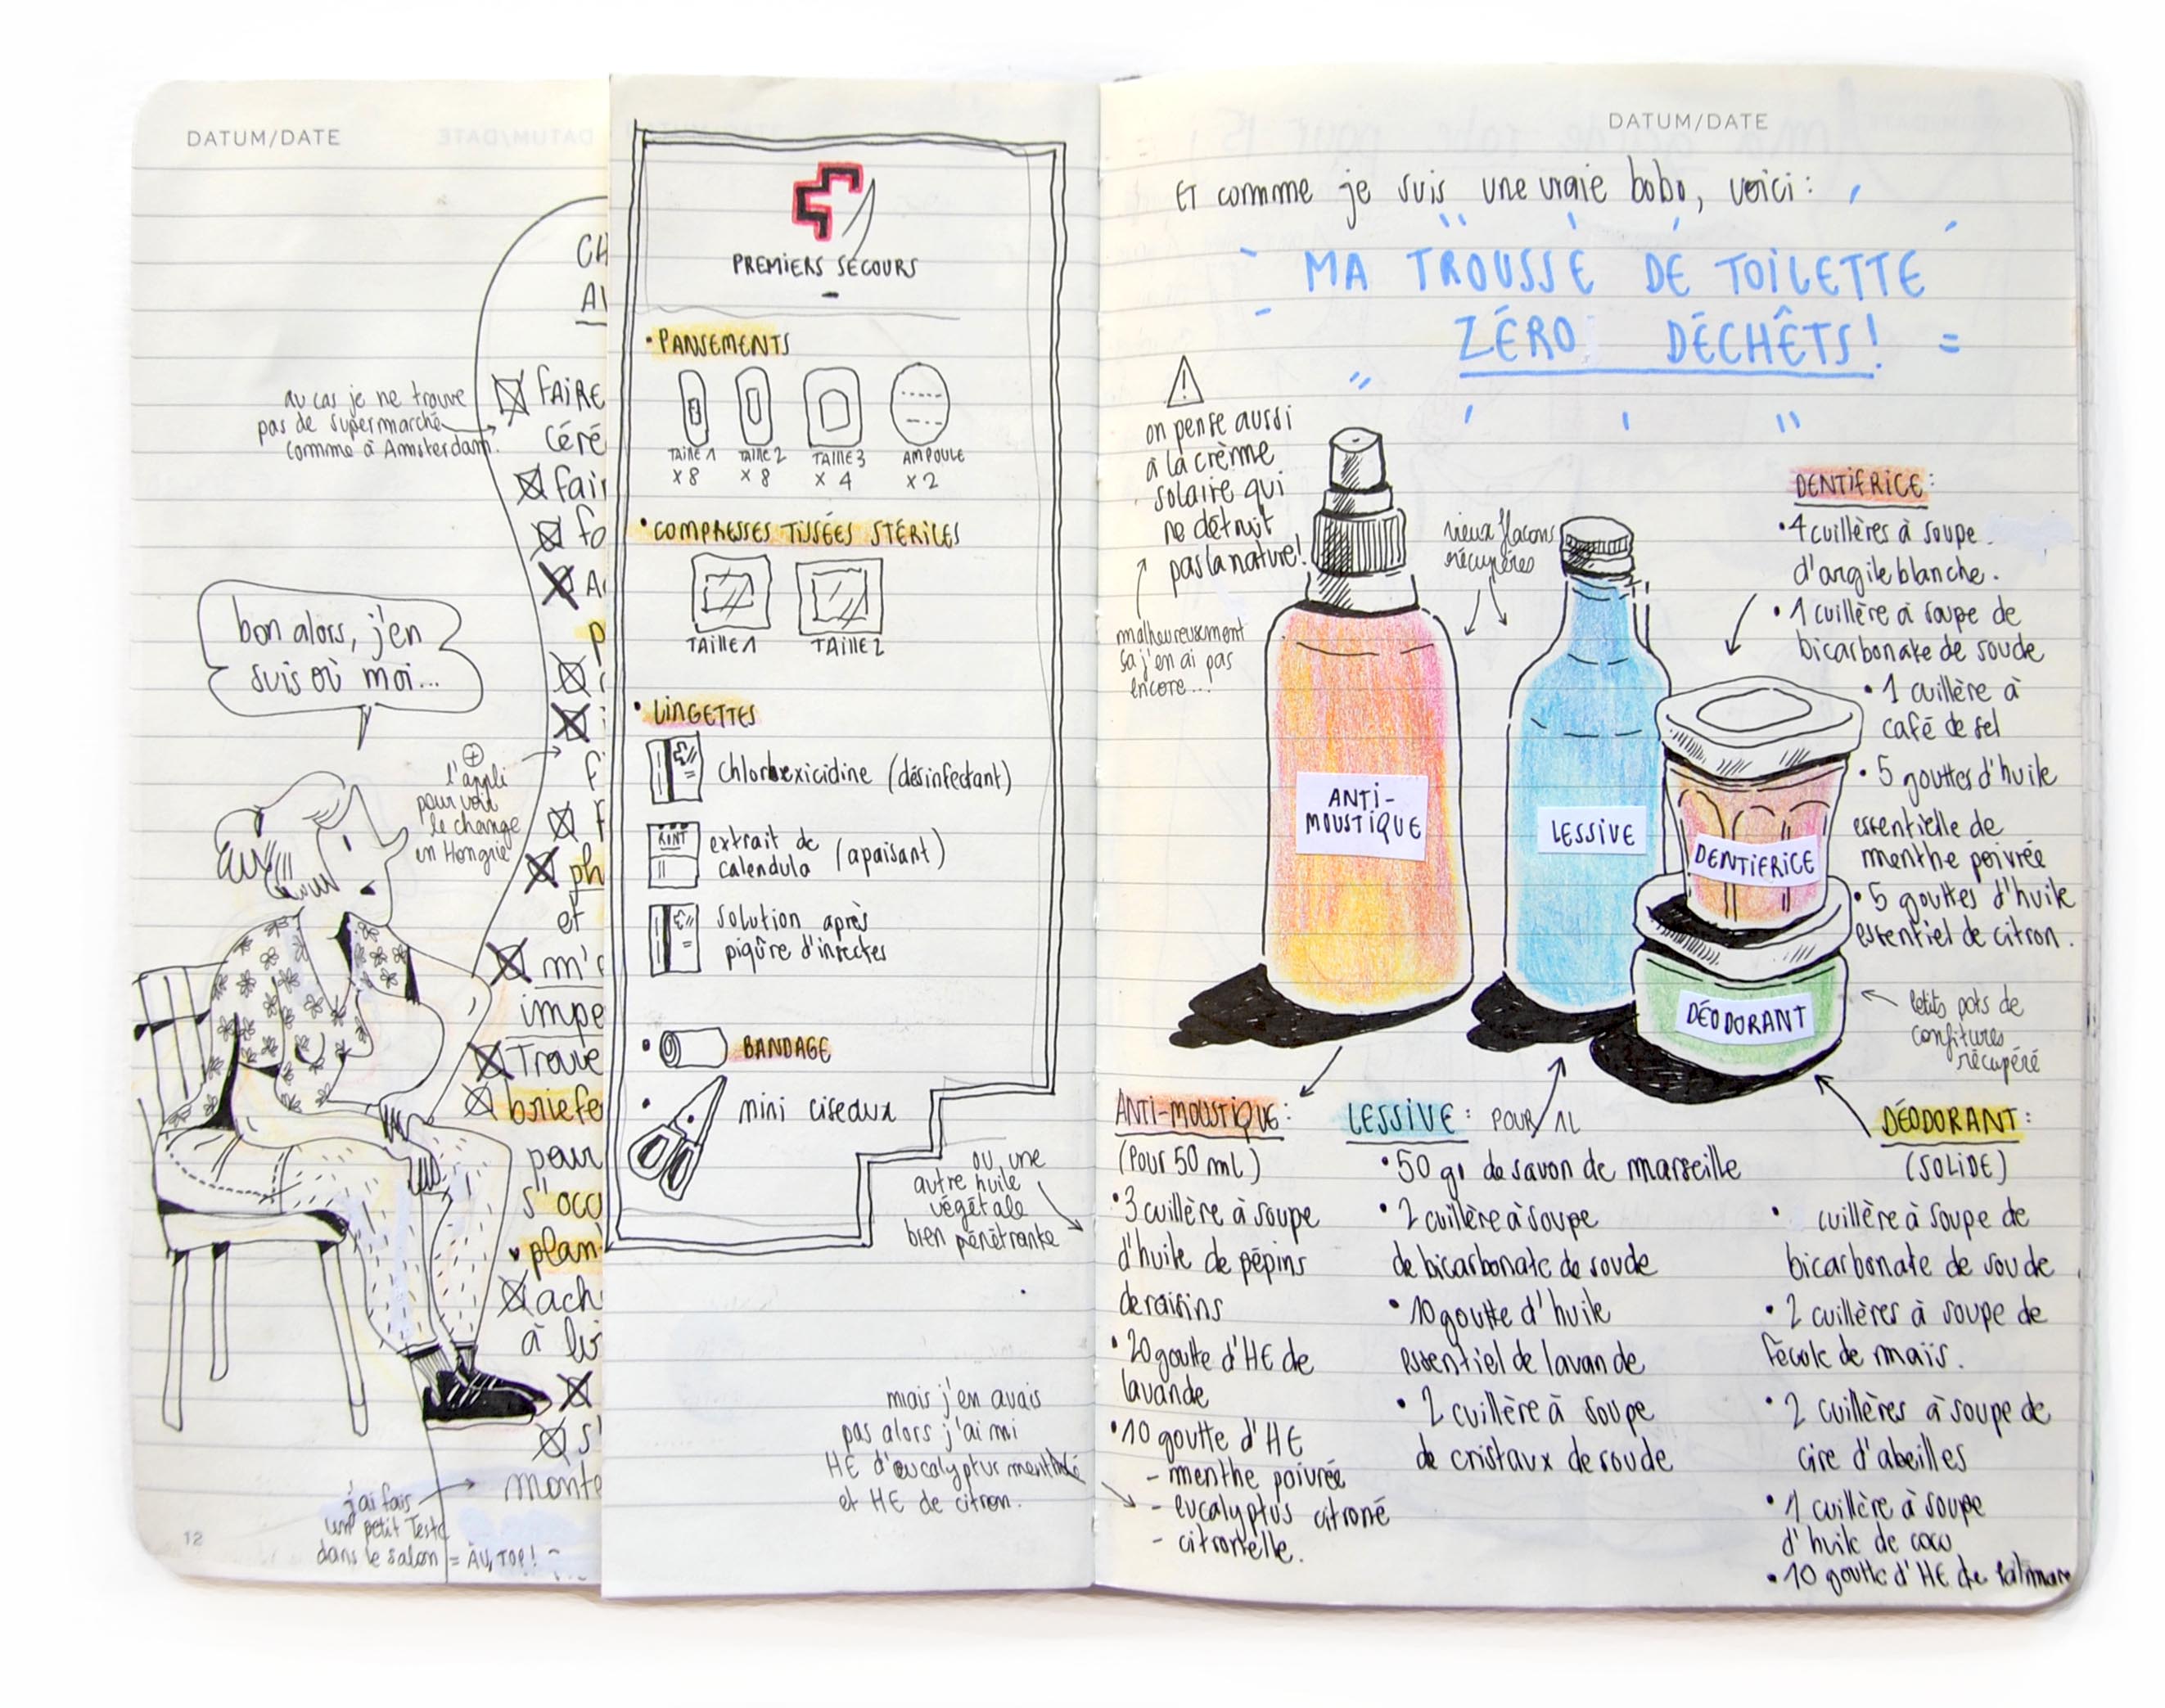 DATUM/DATE
CH
AV
au cas je ne trouve
pas de supermarché
comme à Amsterdam.
FAIRE
céré
fair
fo
A
p
bon alors, j'en
suis où moi...
⊕
l'appli
pour voir
le change
en Hongrie
ph
et
m'
impe
Trouve
briefe
pour
s'occ
plan
ach
à li
s'
monte
j'ai fais
un petit Teste
dans le salon = AU TOP!
12
PREMIERS SECOURS
• PANSEMENTS
TAILLE 1
X 8
TAILLE 2
X 8
TAILLE 3
X 4
AMPOULE
X 2
• COMPRESSES TISSÉES STÉRILES
TAILLE 1
TAILLE 2
• LINGETTES
chlorhexicidine (désinfectant)
extrait de
calendula (apaisant)
solution après
piqûre d'insectes
• BANDAGE
• mini ciseaux
ou une
autre huile
végétale
bien pénétrante
mais j'en avais
pas alors j'ai mi
HE d'eucalyptus mentholé
et HE de citron.
DATUM/DATE
ET comme je suis une vraie bobo, voici :
MA TROUSSE DE TOILETTE
ZÉRO DÉCHÊTS!
on pense aussi
à la crème
solaire qui
ne détruit
pas la nature!
malheureusement
sa j'en ai pas
encore...
vieux flacons
récupérés
ANTI-
MOUSTIQUE
LESSIVE
DENTIFRICE
DÉODORANT
DENTIFRICE:
• 4 cuillères à soupe
d'argile blanche.
• 1 cuillère à soupe de
bicarbonate de soude
• 1 cuillère à
café de sel
• 5 gouttes d'huile
essentielle de
menthe poivrée
• 5 gouttes d'huile
essentiel de citron.
petits pots de
confitures
récupéré
ANTI-MOUSTIQUE:
(Pour 50 ml)
• 3 cuillère à soupe
d'huile de pépins
de raisins
• 20 goutte d'HE de
lavande
• 10 goutte d'HE
- menthe poivrée
- eucalyptus citroné
- citronelle.
LESSIVE: POUR 1L
• 50 gr de savon de marseille
• 2 cuillère à soupe
de bicarbonate de soude
• 10 goutte d'huile
essentiel de lavande
• 2 cuillère à soupe
de cristaux de soude
DÉODORANT:
(SOLIDE)
• cuillère à soupe de
bicarbonate de soude
• 2 cuillères à soupe de
fécule de maïs.
• 2 cuillères à soupe de
cire d'abeilles
• 1 cuillère à soupe
d'huile de coco
• 10 goutte d'HE de